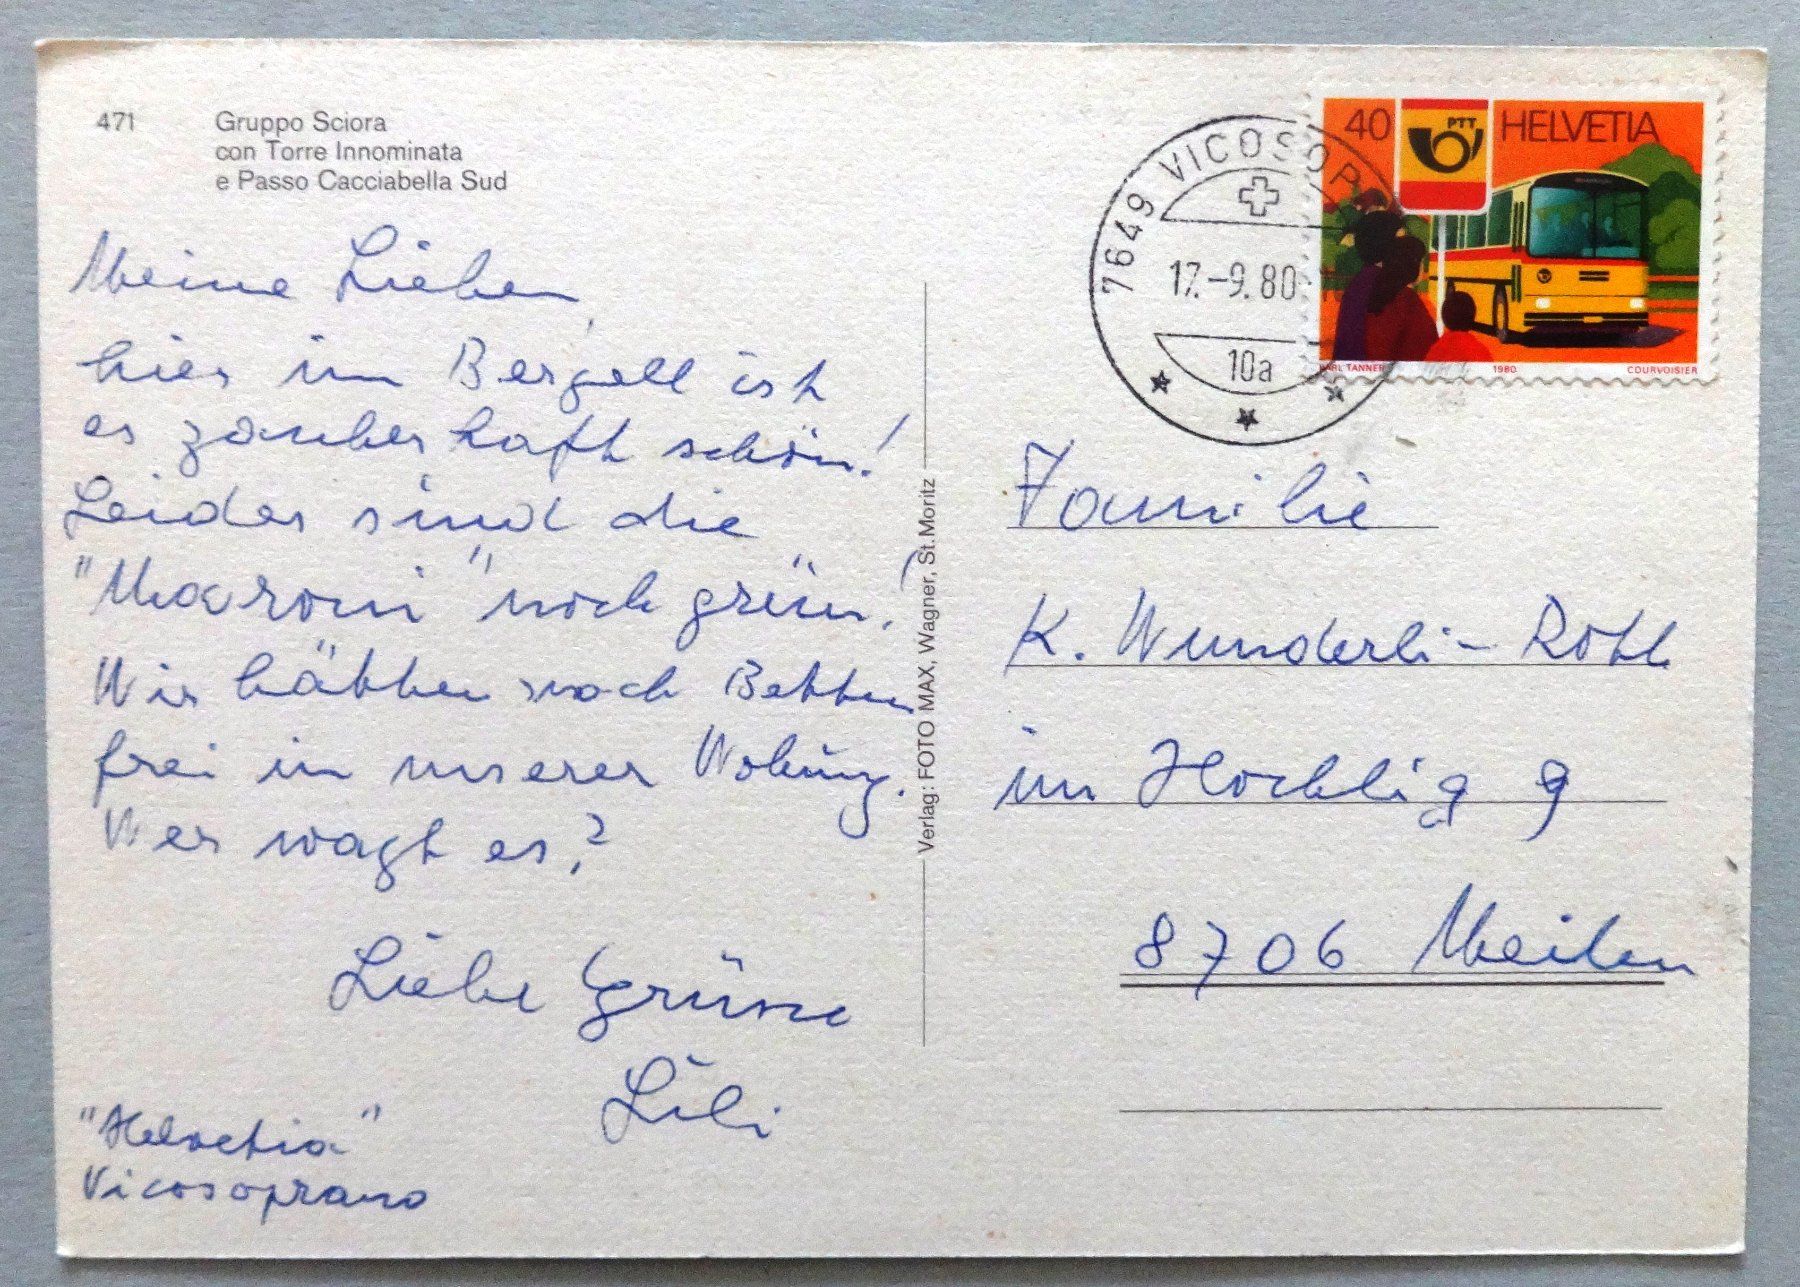 471
Gruppo Sciora
con Torre Innominata
e Passo Cacciabella Sud
Meine Lieben,
hier im Bergell ist
es zauberhaft schön!
Leider sind die
"Maroni" noch grün!
Wir hätten noch Betten
frei in unserer Wohnung.
Wer wagt es?
Liebe Grüsse
Lili
"Helvetia"
Vicosoprano
Verlag: FOTO MAX, Wagner, St. Moritz
7649 VICOSOP
17.-9.80
10a
40 PTT HELVETIA
KARL TANNER 1980 COURVOISIER
Familie
K. Wunderli-Roth
im Hochlig 9
8706 Meilen